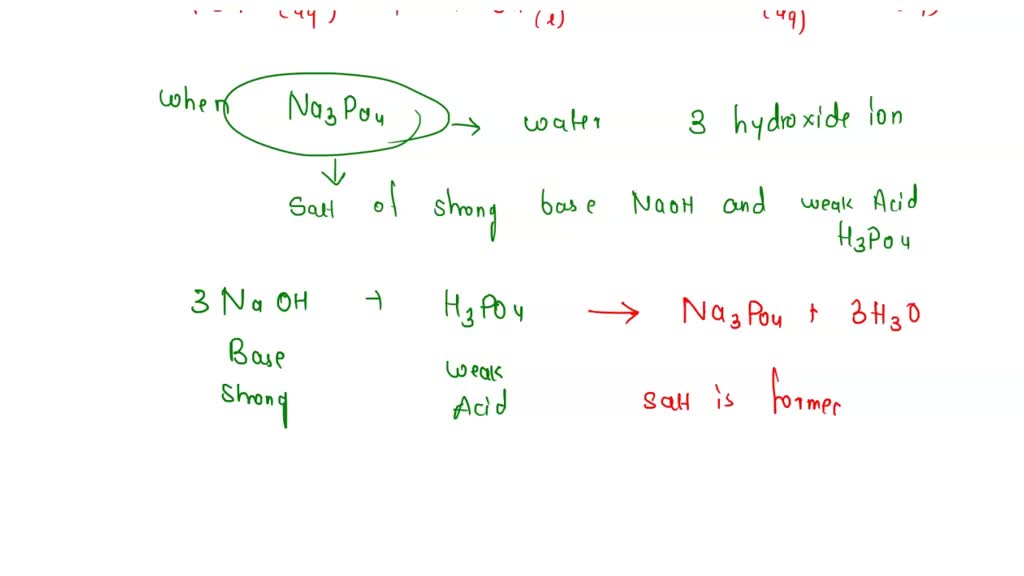 (aq) (l) (aq)
when Na3PO4 → water 3 hydroxide ion
Salt of strong base NaOH and weak Acid
H3PO4
3 NaOH + H3PO4 → Na3PO4 + 3H3O
Base
Strong
weak
Acid
Salt is former